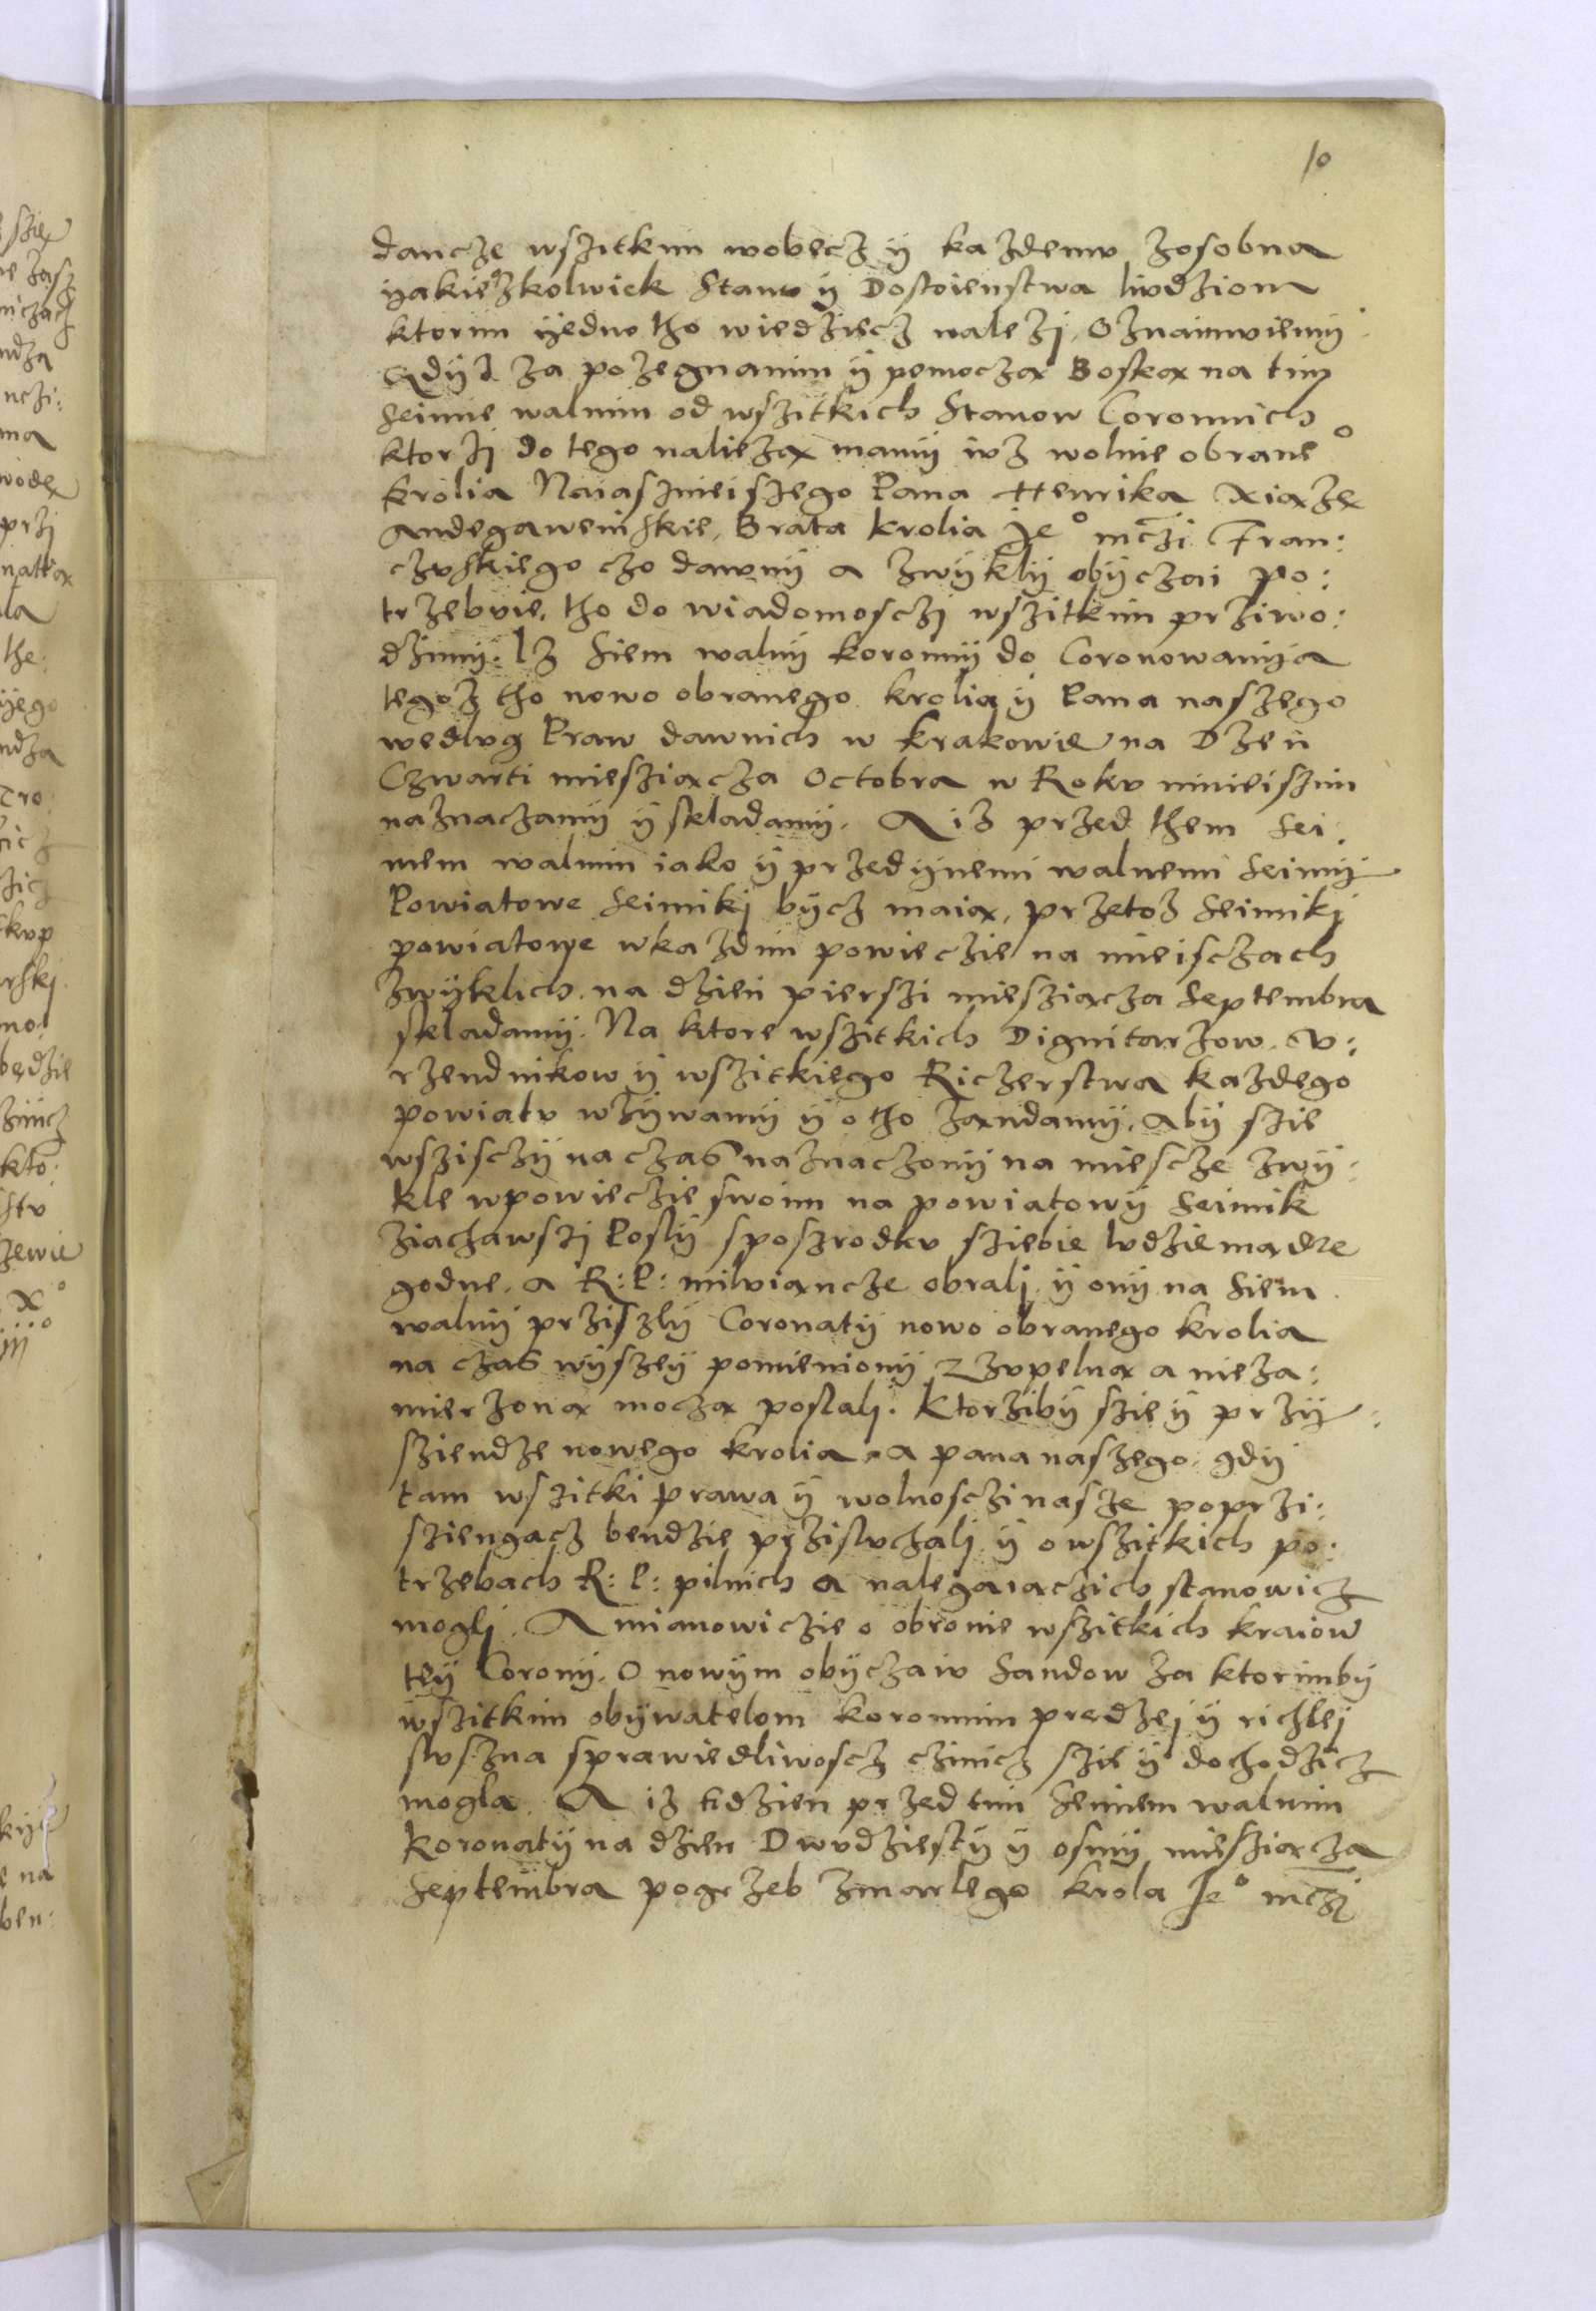 10
dancze wszitkim wobecz ÿ kazdemu zosobna
ÿakie°zkolwiek Stanu ÿ Dostoienstwa liudziom
ktorim ÿedno tho wiedziecz nalezi. Oznaimuiemÿ
Gdÿż za pozegnanim ÿ pomoczą Boską na tim
Seimie walnim od wszitkich Stanow Coronnich
ktorzi do tego nalieżą mamÿ iuz wolnie obrane°
krolia Naiasznieiszego Pana Henrika Xiążę
Andegaweinskie, Brata krolia Je° mczi Fran:
czuskiego czo dawnÿ a zwÿklÿ obÿczai po:
trzebuie, tho do wiadomosczi wszitkim prziwo:
dzimÿ. Iz Siem walnÿ koronnÿ do Coronowanÿa
tegoz tho nowo obranego krolia ÿ Pana naszego
wedlug Praw dawnich w Krakowie na Dzen
Czwarti miesziącza Octobra w Roku ninieiszim
naznaczamÿ ÿ skladamÿ. A iz przed them Sei:
mem walnim iako ÿ przed ÿnemi walnemi Seimÿ
Powiatowe Seimiki bÿcz maią, przetoz Seimiki
powiatowe wkazdim powieczie na mieisczach
zwÿklich na dzień pierszi miesziącza Septembra
skladamÿ. Na ktore wszitkich Dignitarzow. U:
rzendnikow ÿ wszitkiego Riczerstwa kazdego
powiatu wżÿwamÿ ÿ o tho żandamÿ, abÿ szie
wszisczÿ na czas naznaczonÿ na miescze zwÿ:
kle wpowieczie swoim na powiatowÿ Seimik
ziachawszi Poslÿ sposzrodku sziebie ludzie mądre
godne, a R: P: miluiancze obrali ÿ onÿ na Siem
walnÿ prziszlÿ Coronatÿ nowo obranego krolia
na czas wÿszeÿ pomienionÿ Zzupelną a nieza:
mierzoną moczą poslali. Ktorzibÿ szie ÿ przÿ:
sziendze nowego krolia a pana naszego, gdÿ
tam wszitki prawa ÿ wolnosczi nasze poprzi:
sziengacz bendzie prziszluchali ÿ o wszitkich po:
trzebach R: P: pilnich a nalegaiączich stanowicz
mogli. A mianowiczie o obronie wszitkich kraiow
teÿ Coronÿ. O nowÿm obÿczaiu Sandow za ktorimbÿ
wszitkim obÿwatelom koronnim prędzej ÿ richlej
sluszna sprawiedliwoscz czinicz szie ÿ dochodzicz
mogla. A iz tidzien przed tim Seimem walnim
koronatÿ na dzien Dwudziestÿ ÿ osmÿ miesziącza
Septembra pogrzeb zmarlego krola Je° mczi